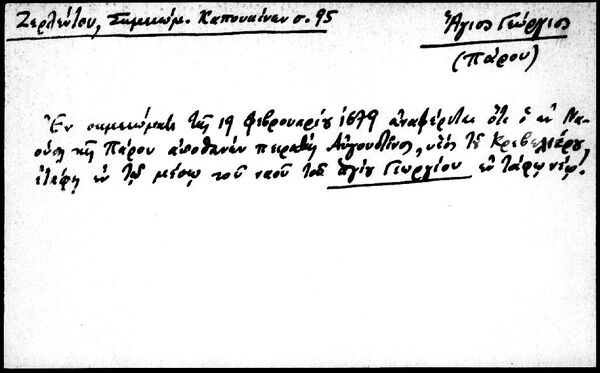 Ζερλέντου, Σημειώμ. Καπουκίνων σ. 95
Ἅγιος Γεώργιος
(Πάρου)
Ἐν σημειώματι τῆς 19 Φεβρουαρίου 1679 ἀναφέρεται ὅτι ὁ ἐν Να-
ούσῃ τῆς Πάρου ἀποθανὼν πειρατὴς Αὐγουστῖνος, υἱὸς τοῦ Κρεβελιέρη,
ἐτάφη ἐν τῷ μέσῳ τοῦ ναοῦ τοῦ Ἁγίου Γεωργίου ἐν τάφῳ νέῳ.